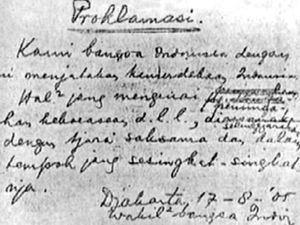 Proklamasi.
Kami bangsa Indonesia dengan
ni menjatakan kemerdekaan
Hal² jang mengenai peminda-
han kekoeasaan d.l.l., diselenggarakan
dengan tjara saksama dan dalam
tempoh jang sesingkat-singkat
nja.
Djakarta, 17-8-'05
Wakil² bangsa